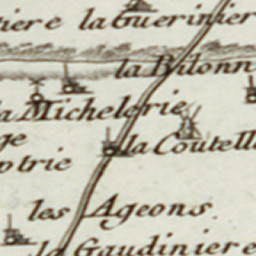 iere la Guerinier
la Bilonn
la Michelerie
ge
la Coutell
ptrie
les Ageons.
la Gaudiniere